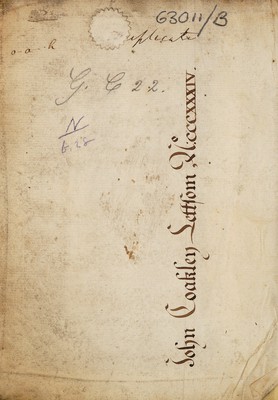 63011/B
o-a-k
Duplicate
G. C 22.
N
6.22
John Coakley Lettsom N:o CCCXXXIV.